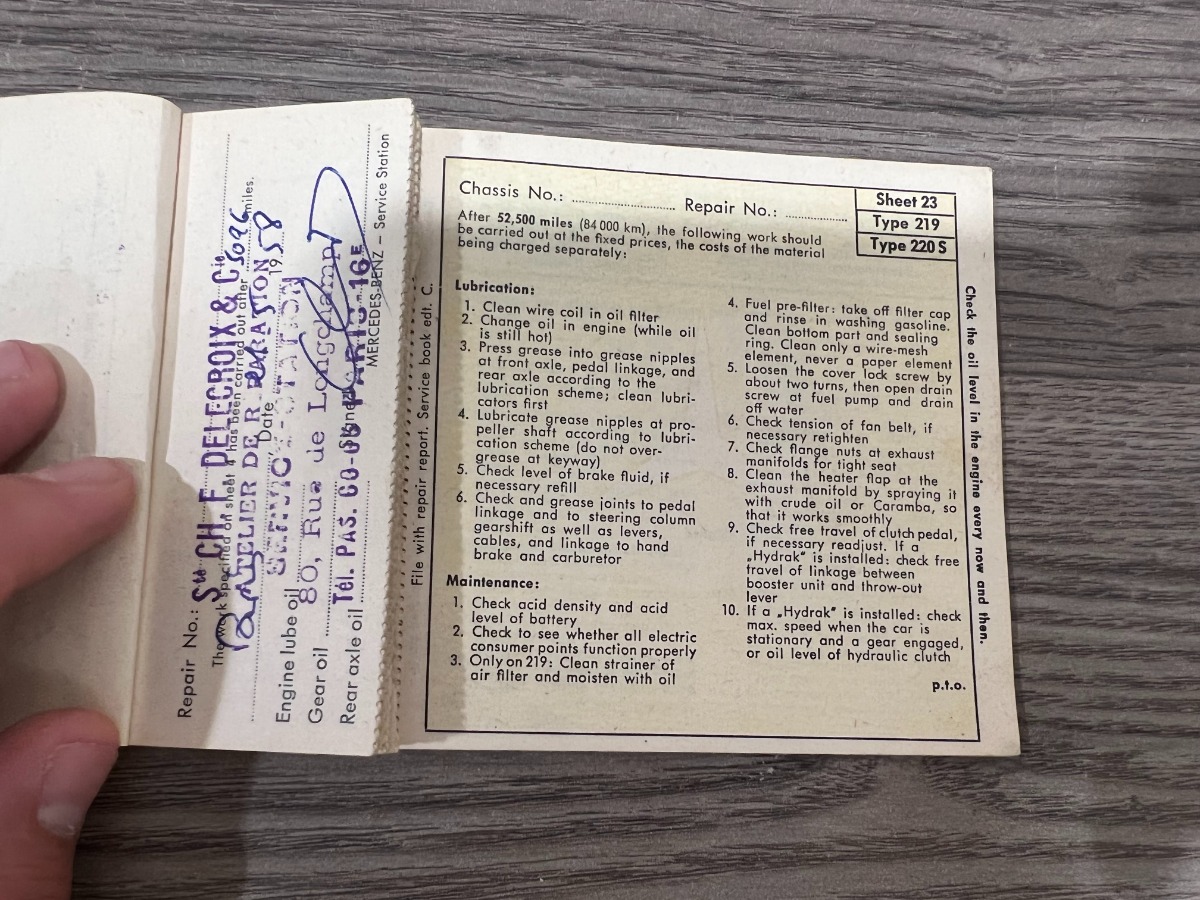 Repair No.:
Sté CH. F. DELECROIX & Cie
The work specified on sheet 4 has been carried out after 5096 miles.
ATELIER DE RÉPARATION
Date 19 58
SERVICE-STATION
Engine lube oil
80, Rue de Longchamp
Gear oil
Signed
Tél. PAS. 60-06 PARIS-16E
Rear axle oil
MERCEDES-BENZ – Service Station
File with repair report. Service book edt. C.
Chassis No.: Repair No.:
Sheet 23
Type 219
Type 220 S
After 52,500 miles (84 000 km), the following work should
be carried out at the fixed prices, the costs of the material
being charged separately:
Lubrication:
1. Clean wire coil in oil filter
2. Change oil in engine (while oil
is still hot)
3. Press grease into grease nipples
at front axle, pedal linkage, and
rear axle according to the
lubrication scheme; clean lubri-
cators first
4. Lubricate grease nipples at pro-
peller shaft according to lubri-
cation scheme (do not over-
grease at keyway)
5. Check level of brake fluid, if
necessary refill
6. Check and grease joints to pedal
linkage and to steering column
gearshift as well as levers,
cables, and linkage to hand
brake and carburetor
Maintenance:
1. Check acid density and acid
level of battery
2. Check to see whether all electric
consumer points function properly
3. Only on 219: Clean strainer of
air filter and moisten with oil
4. Fuel pre-filter: take off filter cap
and rinse in washing gasoline.
Clean bottom part and sealing
ring. Clean only a wire-mesh
element, never a paper element
5. Loosen the cover lock screw by
about two turns, then open drain
screw at fuel pump and drain
off water
6. Check tension of fan belt, if
necessary retighten
7. Check flange nuts at exhaust
manifolds for tight seat
8. Clean the heater flap at the
exhaust manifold by spraying it
with crude oil or Caramba, so
that it works smoothly
9. Check free travel of clutch pedal,
if necessary readjust. If a
„Hydrak" is installed: check free
travel of linkage between
booster unit and throw-out
lever
10. If a „Hydrak" is installed: check
max. speed when the car is
stationary and a gear engaged,
or oil level of hydraulic clutch
p.t.o.
Check the oil level in the engine every now and then.